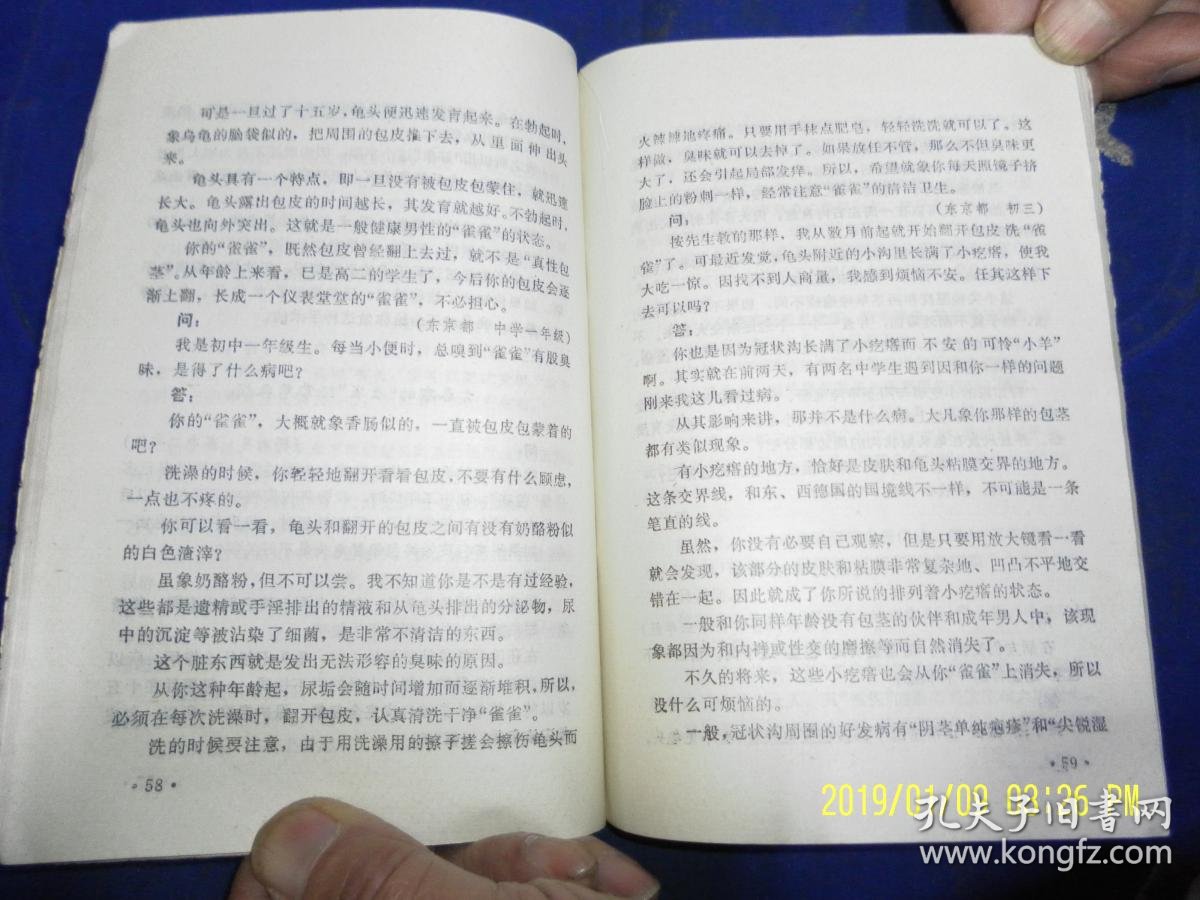 可是一旦过了十五岁，龟头便迅速发育起来。在勃起时，
象乌龟的脑袋似的，把周围的包皮推下去，从里面伸出头
来。
龟头具有一个特点，即一旦没有被包皮包蒙住，就迅速
长大。龟头露出包皮的时间越长，其发育就越好。不勃起时，
龟头也向外突出。这就是一般健康男性的“雀雀”的状态。
你的“雀雀”，既然包皮曾经翻上去过，就不是“真性包
茎”。从年龄上来看，已是高二的学生了，今后你的包皮会逐
渐上翻，长成一个仪表堂堂的“雀雀”，不必担心。
问：　（东京都　中学一年级）
我是初中一年级生。每当小便时，总嗅到“雀雀”有股臭
味，是得了什么病吧？
答：
你的“雀雀”，大概就象香肠似的，一直被包皮包蒙着的
吧？
洗澡的时候，你轻轻地翻开看看包皮，不要有什么顾虑，
一点也不疼的。
你可以看一看，龟头和翻开的包皮之间有没有奶酪粉似
的白色渣滓？
虽象奶酪粉，但不可以尝。我不知道你是不是有过经验，
这些都是遗精或手淫排出的精液和从龟头排出的分泌物，尿
中的沉淀等被沾染了细菌，是非常不清洁的东西。
这个脏东西就是发出无法形容的臭味的原因。
从你这种年龄起，尿垢会随时间增加而逐渐堆积，所以，
必须在每次洗澡时，翻开包皮，认真清洗干净“雀雀”。
洗的时候要注意，由于用洗澡用的擦子搓会擦伤龟头而
·58·
火辣辣地疼痛。只要用手抹点肥皂，轻轻洗洗就可以了。这
样做，臭味就可以去掉了。如果放任不管，那么不但臭味更
大了，还会引起局部发痒。所以，希望就象你每天照镜子挤
脸上的粉刺一样，经常注意“雀雀”的清洁卫生。
问：　（东京都　初三）
按先生教的那样、我从数月前起就开始翻开包皮洗“雀
雀”了。可最近发觉，龟头附近的小沟里长满了小疙瘩，使我
大吃一惊。因找不到人商量，我感到烦恼不安。任其这样下
去可以吗？
答：
你也是因为冠状沟长满了小疙瘩而不安的可怜“小羊”
啊。其实就在前两天，有两名中学生遇到因和你一样的问题
刚来我这儿看过病。
从其影响来讲，那并不是什么病。大凡象你那样的包茎
都有类似现象。
有小疙瘩的地方，恰好是皮肤和龟头粘膜交界的地方。
这条交界线，和东、西德国的国境线不一样，不可能是一条
笔直的线。
虽然，你没有必要自己观察，但是只要用放大镜看一看
就会发现，该部分的皮肤和粘膜非常复杂地、凹凸不平地交
错在一起。因此就成了你所说的排列着小疙瘩的状态。
一般和你同样年龄没有包茎的伙伴和成年男人中，该现
象都因为和内裤或性交的磨擦等而自然消失了。
不久的将来，这些小疙瘩也会从你“雀雀”上消失，所以
没什么可烦恼的。
一般，冠状沟周围的好发病有“阴茎单纯疱疹”和“尖锐湿
·59·
2019/01/09 03:26 PM
孔夫子旧书网
www.kongfz.com